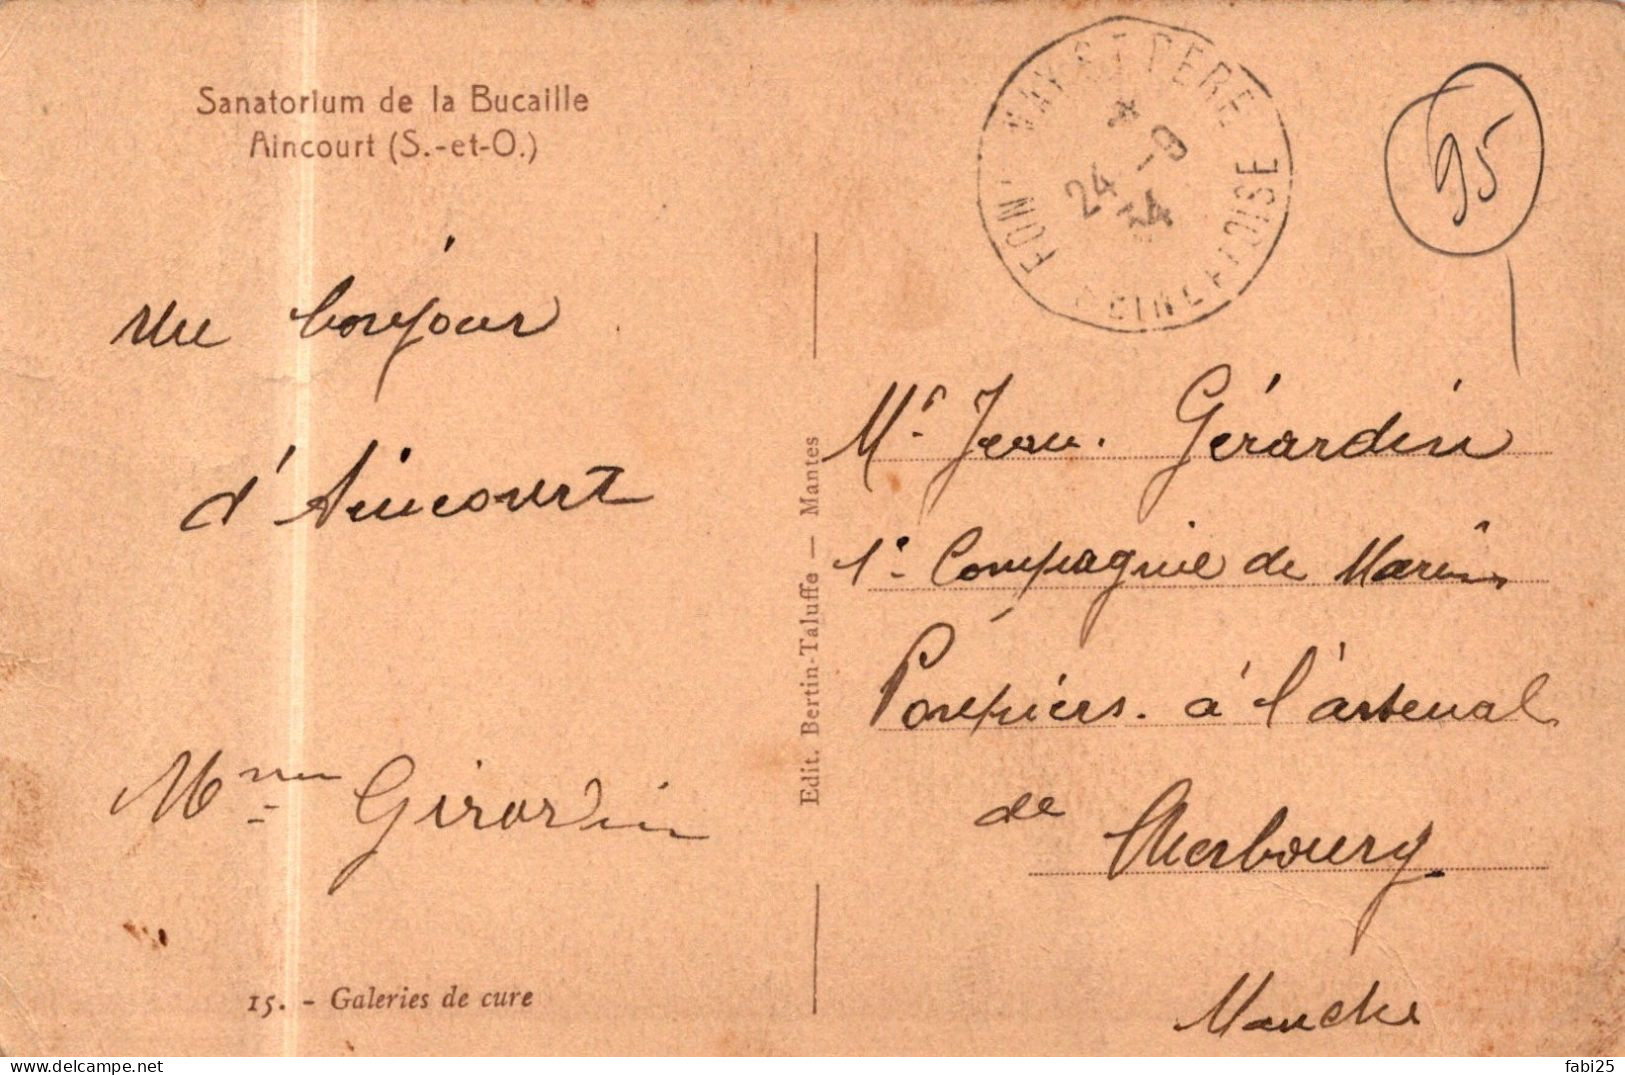 Sanatorium de la Bucaille
Aincourt (S.-et-O.)
un bonjour
d'Aincourt
Mme Girardin
15. - Galeries de cure
Edit. Bertin-Taluffe — Mantes
FON
ST PERE
SEINE ET OISE
24 -9
34
95
Mr Jean. Gérardin
1e Compagnie de Marins
Pompiers. à l'arsenal
de Cherbourg
Manche
fabi25